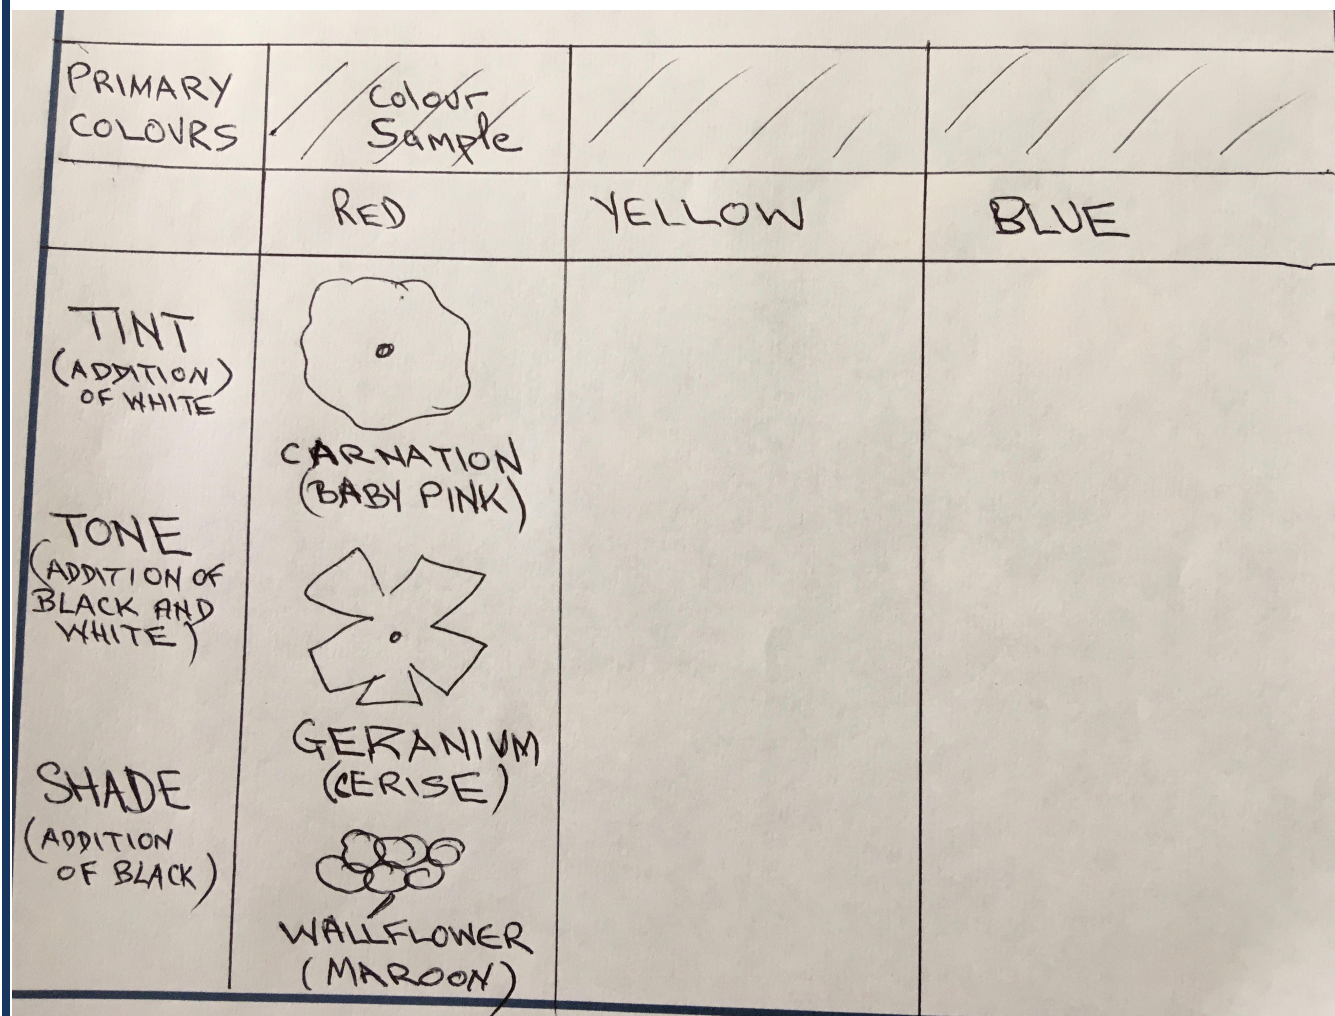 PRIMARY
COLOURS
Colour
Sample
RED
YELLOW
BLUE
TINT
(ADDITION)
OF WHITE
CARNATION
(BABY PINK)
TONE
(ADDITION OF
BLACK AND
WHITE)
GERANIUM
(CERISE)
SHADE
(ADDITION
OF BLACK)
WALLFLOWER
(MAROON)